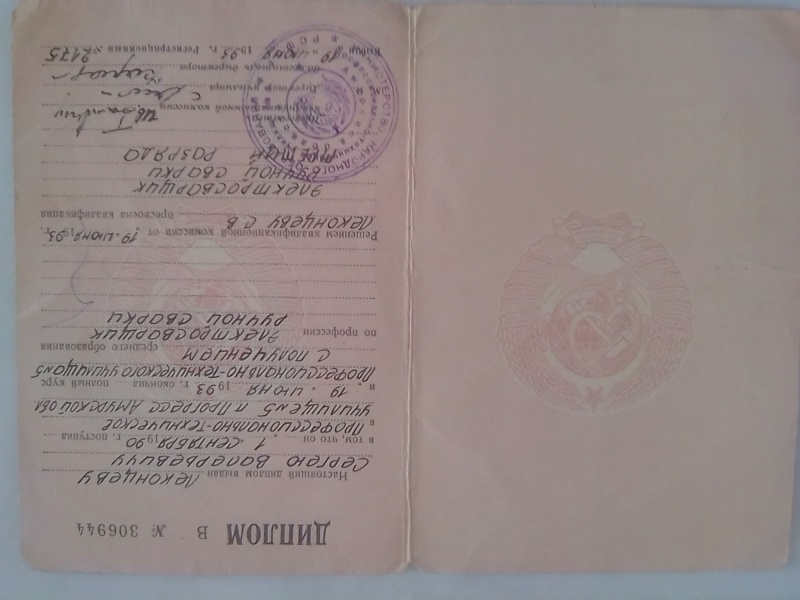 ДИПЛОМ В № 306944
Настоящий диплом выдан Леконцеву
Сергею Валерьевичу
в том, что он 1. сентября 1990 г. поступил
в профессионально-техническое
училище №5 п Прогресс Амурской обл
и 19. июня 1993 г. окончил полный курс
Профессионально-технического училища №5
с получением среднего образования
по профессии электросварщик
ручной сварки
Решением квалификационной комиссии от 19. июня 1993 г.
Леконцеву С.В присвоена квалификация
электросварщик
ручной сварки
третий разряда
Председатель квалификационной комиссии
Директор училища
Выдан 19 июня 1993 г. Регистрационный № 2175